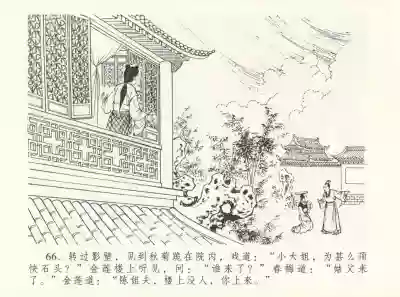 66. 转过影壁，见到秋菊跪在院内，戏道：“小大姐，为甚么顶
快石头？”金莲楼上听见，问：“谁来了？”春梅道：“姑父来
了。”金莲道：“陈姐夫，楼上没人，你上来。”